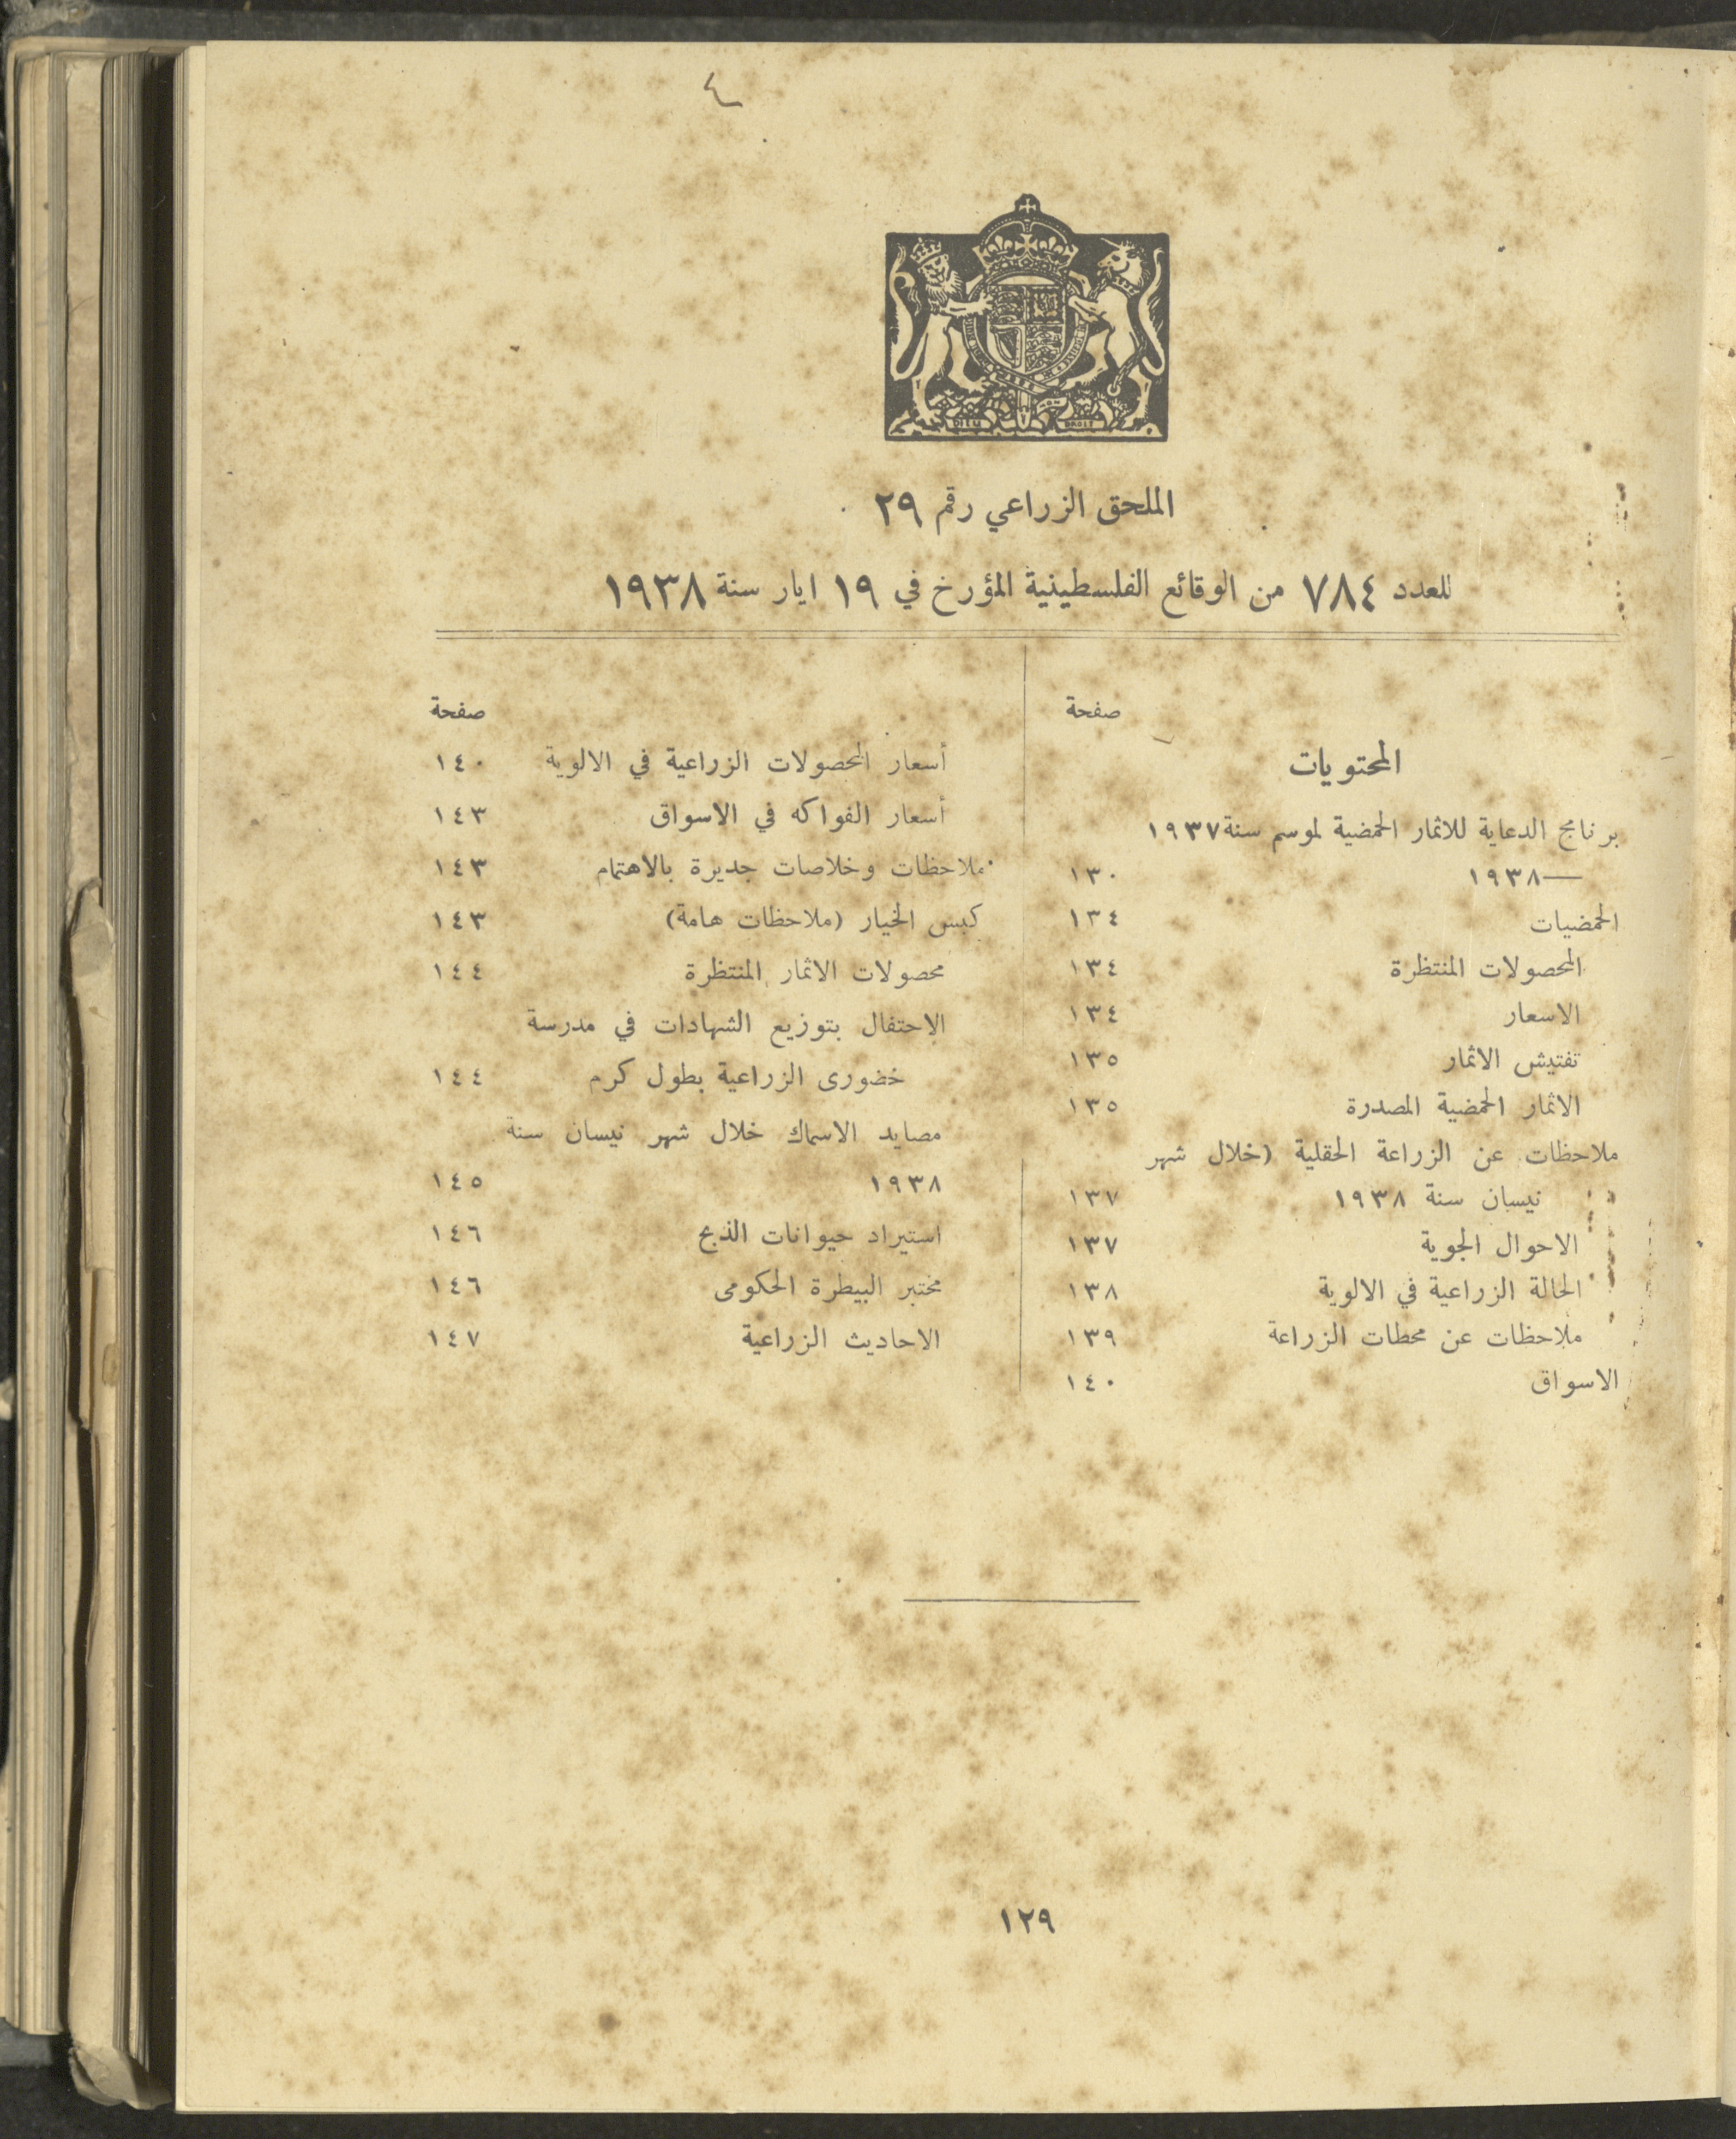 ٤
DIEU DROIT
الملحق الزراعي رقم ٢٩
للعدد ٧٨٤ من الوقائع الفلسطينية المؤرخ في ١٩ ايار سنة ١٩٣٨
صفحة
المحتويات
برنامج الدعاية للاثمار الحمضية لموسم سنة ١٩٣٧
—١٩٣٨ ١٣٠
الحمضيات ١٣٤
المحصولات المنتظرة ١٣٤
الاسعار ١٣٤
تفتيش الاثمار ١٣٥
الاثمار الحمضية المصدرة ١٣٥
ملاحظات عن الزراعة الحقلية (خلال شهر
نيسان سنة ١٩٣٨ ١٣٧
الاحوال الجوية ١٣٧
الحالة الزراعية في الالوية ١٣٨
ملاحظات عن محطات الزراعة ١٣٩
الاسواق ١٤٠
صفحة
أسعار المحصولات الزراعية في الالوية ١٤٠
أسعار الفواكه في الاسواق ١٤٣
ملاحظات وخلاصات جديرة بالاهتمام ١٤٣
كبس الخيار (ملاحظات هامة) ١٤٣
محصولات الاثمار المنتظرة ١٤٤
الاحتفال بتوزيع الشهادات في مدرسة
خضورى الزراعية بطول كرم ١٤٤
مصايد الاسماك خلال شهر نيسان سنة
١٩٣٨ ١٤٥
استيراد حيوانات الذبح ١٤٦
مختبر البيطرة الحكومى ١٤٦
الاحاديث الزراعية ١٤٧
١٢٩